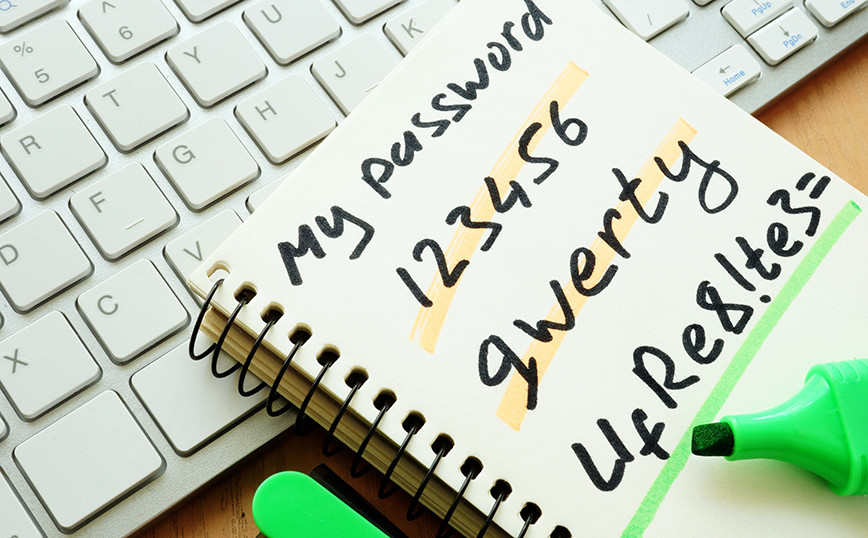 My password
123456
qwerty
UfRe8!te3=
^
6
%
5
T
Y
K
J
R
G
H
F
D
V
C
X
PgUp
PgDn
Home
End